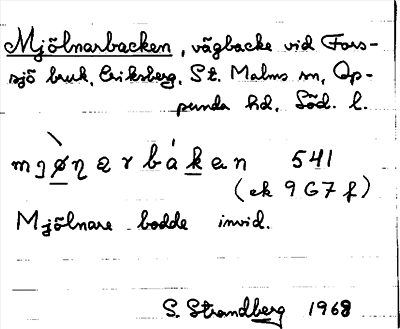 Mjölnarbacken, vägbacke vid Fors-
sjö bruk, Eriksberg, St. Malms sn, Op-
punda hd, Söd. l.
mjøηarbákan 541
(ek 967 f)
Mjölnare bodde invid.
S. Strandberg 1968